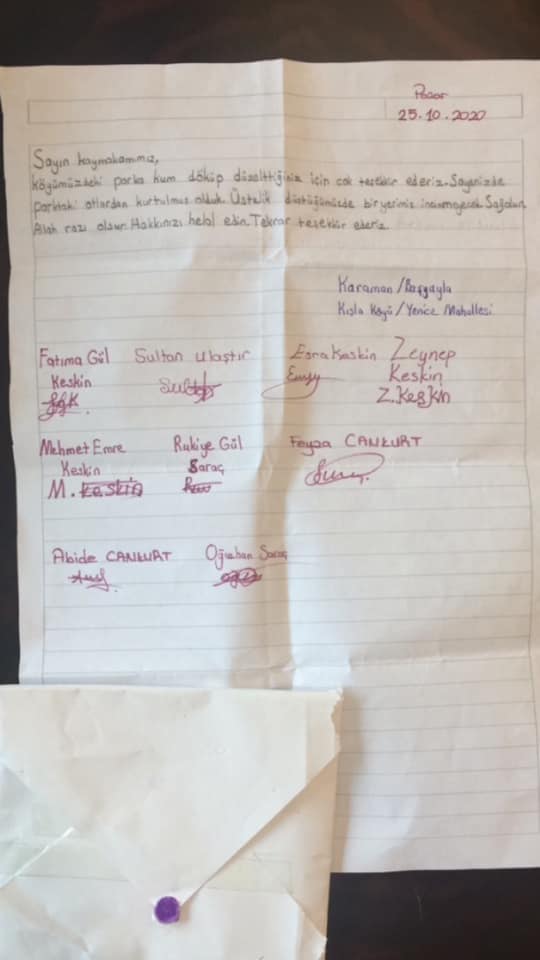 Pazar
25.10.2020
Sayın kaymakamımız,
Köyümüzdeki parka kum döküp düzelttiğiniz için çok teşekkür ederiz. Sayenizde
parktaki otlardan kurtulmuş olduk. Üstelik düştüğümüzde bir yerimiz incinmeyecek. Sağolun
Allah razı olsun. Hakkınızı helal edin. Tekrar teşekkür ederiz.
Karaman/Başyayla
Kışla Köyü/Yenice Mahallesi
Fatıma Gül Sultan ulaştır Esra Keskin Zeynep
Keskin Keskin
Z.Keskin
Mehmet Emre Rukiye Gül Feyza CANKURT
Keskin Saraç
M. Keskin
Abide CANKURT Oğuzhan Saraç